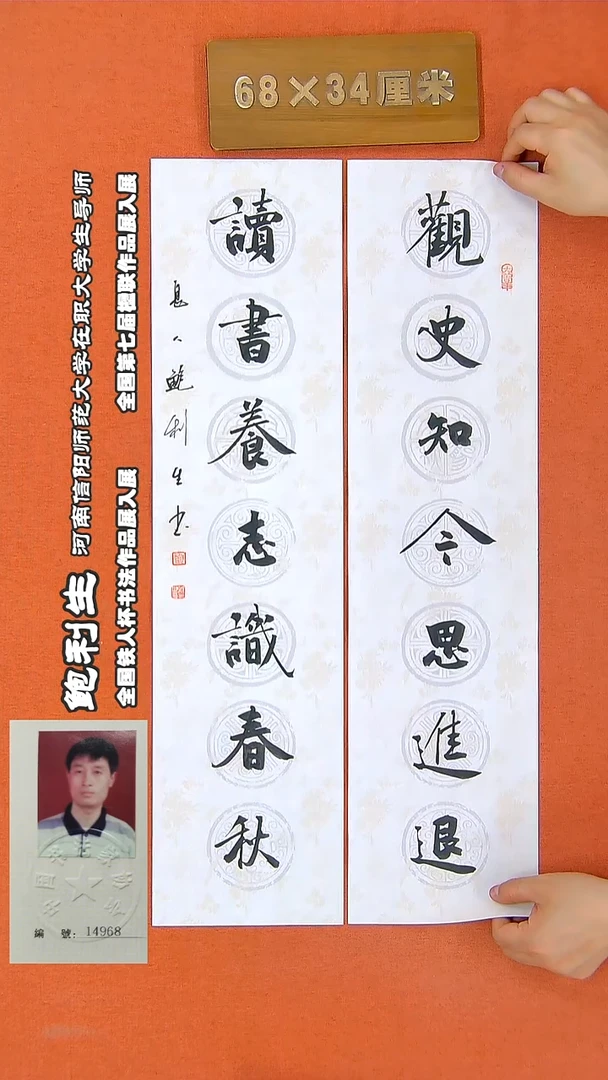 68×34厘米
觀史知今思進退
讀書養志識春秋
息人鮑利生书
鲍利生 河南信阳师范大学在职大学生导师
全国铁人杯书法作品展入展 全国第七届楹联作品展入展
編 號：14968